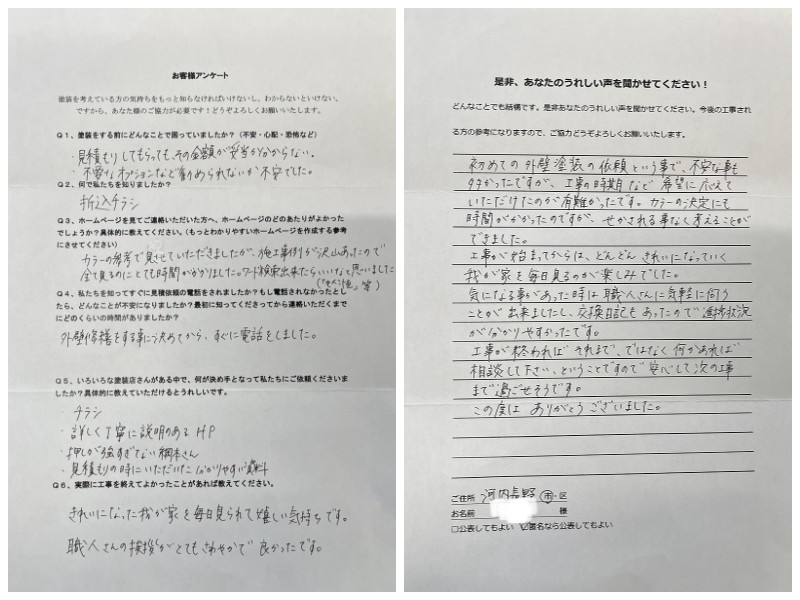 お客様アンケート
塗装を考えている方の気持ちをもっと知らなければいけないし、わからないといけない。
ですから、あなた様のご協力が必要です！どうぞよろしくお願いいたします。
Q1、塗装をする前にどんなことで困っていましたか？（不安・心配・恐怖など）
・見積もりしてもらっても、その金額が妥当か分からない。
・不要なオプションなど勧められないか不安でした。
Q2、何で私たちを知りましたか？
折込チラシ
Q3、ホームページを見てご連絡いただいた方へ、ホームページのどのあたりがよかった
でしょうか？具体的に教えてください。（もっとわかりやすいホームページを作成する参考
にさせてください）
カラーの参考で見させていただきましたが、施工事例が沢山あったので
全て見るのにとても時間がかかりました。ワード検索出来たらいいなと思いました
Q4、私たちを知ってすぐに見積依頼の電話をされましたか？もし電話されなかったとし
たら、どんなことが不安になりましたか？最初に知ってくださってから連絡いただくまで
にどのくらいの時間がありましたか？
外壁修繕をする事に決めてから、すぐに電話をしました。
Q5、いろいろな塗装店さんがある中で、何が決め手となって私たちにご依頼くださいま
したか？具体的に教えていただけるとうれしいです。
・チラシ
・詳しく丁寧に説明のあるHP
・押しが強すぎない桐本さん
・見積もりの時にいただいた分かりやすい資料
Q6、実際に工事を終えてよかったことがあれば教えてください。
きれいになった我が家を毎日見られて嬉しい気持ちです。
職人さんの挨拶がとてもさわやかで良かったです。
是非、あなたのうれしい声を聞かせてください！
どんなことでも結構です。是非あなたのうれしい声を聞かせてください。今後の工事され
る方の参考になりますので、ご協力どうぞよろしくお願いいたします。
初めての外壁塗装の依頼という事で、不安な事も
多々あったのですが、工事の時期など希望に応えて
いただけたのが有難かったです。カラーの決定にも
時間がかかったのですが、せかされる事なく考えることが
できました。
工事が始まってからは、どんどんきれいになっていく
我が家を毎日見るのが楽しみでした。
気になる事があった時は職人さんに気軽に伺う
ことが出来ましたし、交換日記もあったので進捗状況
が分かりやすかったです。
工事が終わればそれまで、ではなく何かあれば
相談して下さい、ということですので安心して次の工事
まで過ごせそうです。
この度はありがとうございました。
ご住所 河内長野 市・区
お名前 様
□公表してもよい ☑匿名なら公表してもよい